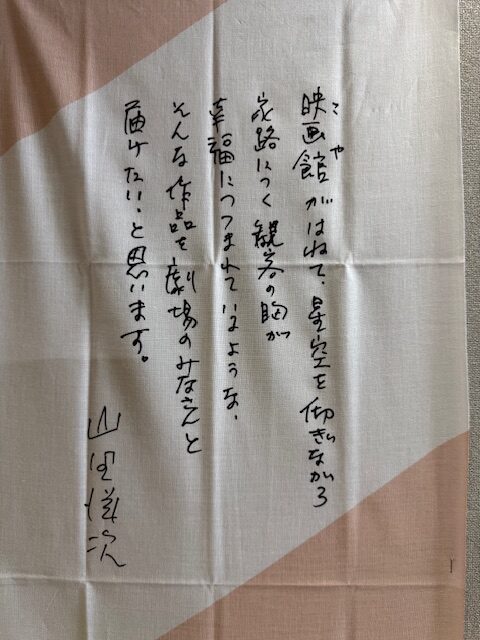 映画館がはねて、星空を仰ぎながら
こや
家路につく観客の胸が
幸福につつまれているような、
そんな作品を劇場のみなさんと
届けたい、と思います。
山田洋次